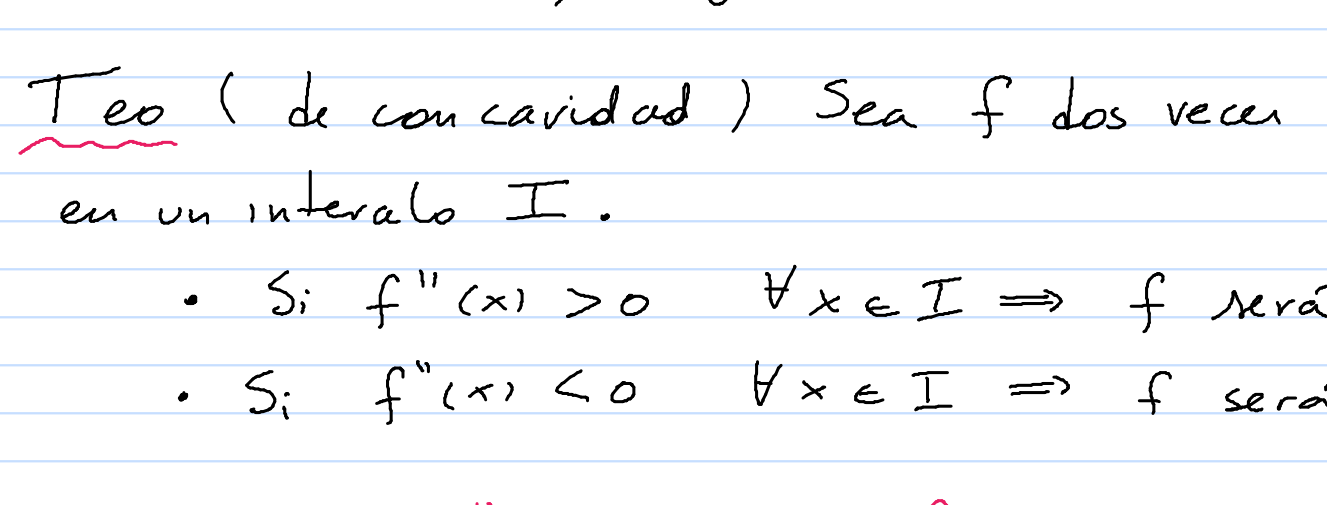 Teo (de concavidad) Sea f dos veces
en un interalo I.
• Si f"(x) > 0 ∀ x ∈ I ⟹ f será
• Si f"(x) < 0 ∀ x ∈ I ⟹ f será